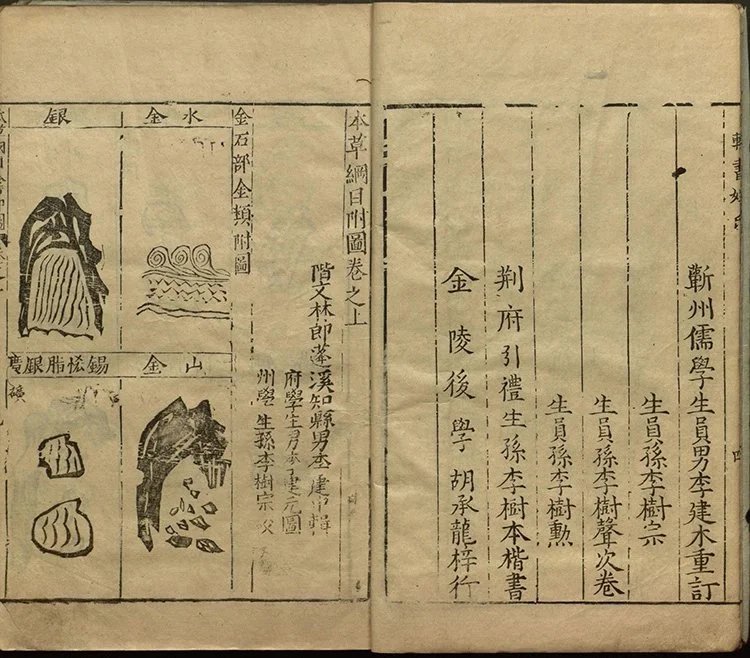 蘄州儒學生員男李建木重訂
生員孫李樹宗
生員孫李樹聲次卷
生員孫李樹勳
荆府引禮生孫李樹本楷書
金陵後學胡承龍梓行
本草綱目附圖卷之上
階文林郎蓬溪知縣男李建中輯
府學生男李建元圖
州學生孫李樹宗校
金石部金類附圖
水金
山金
銀
錫悋脂銀礦